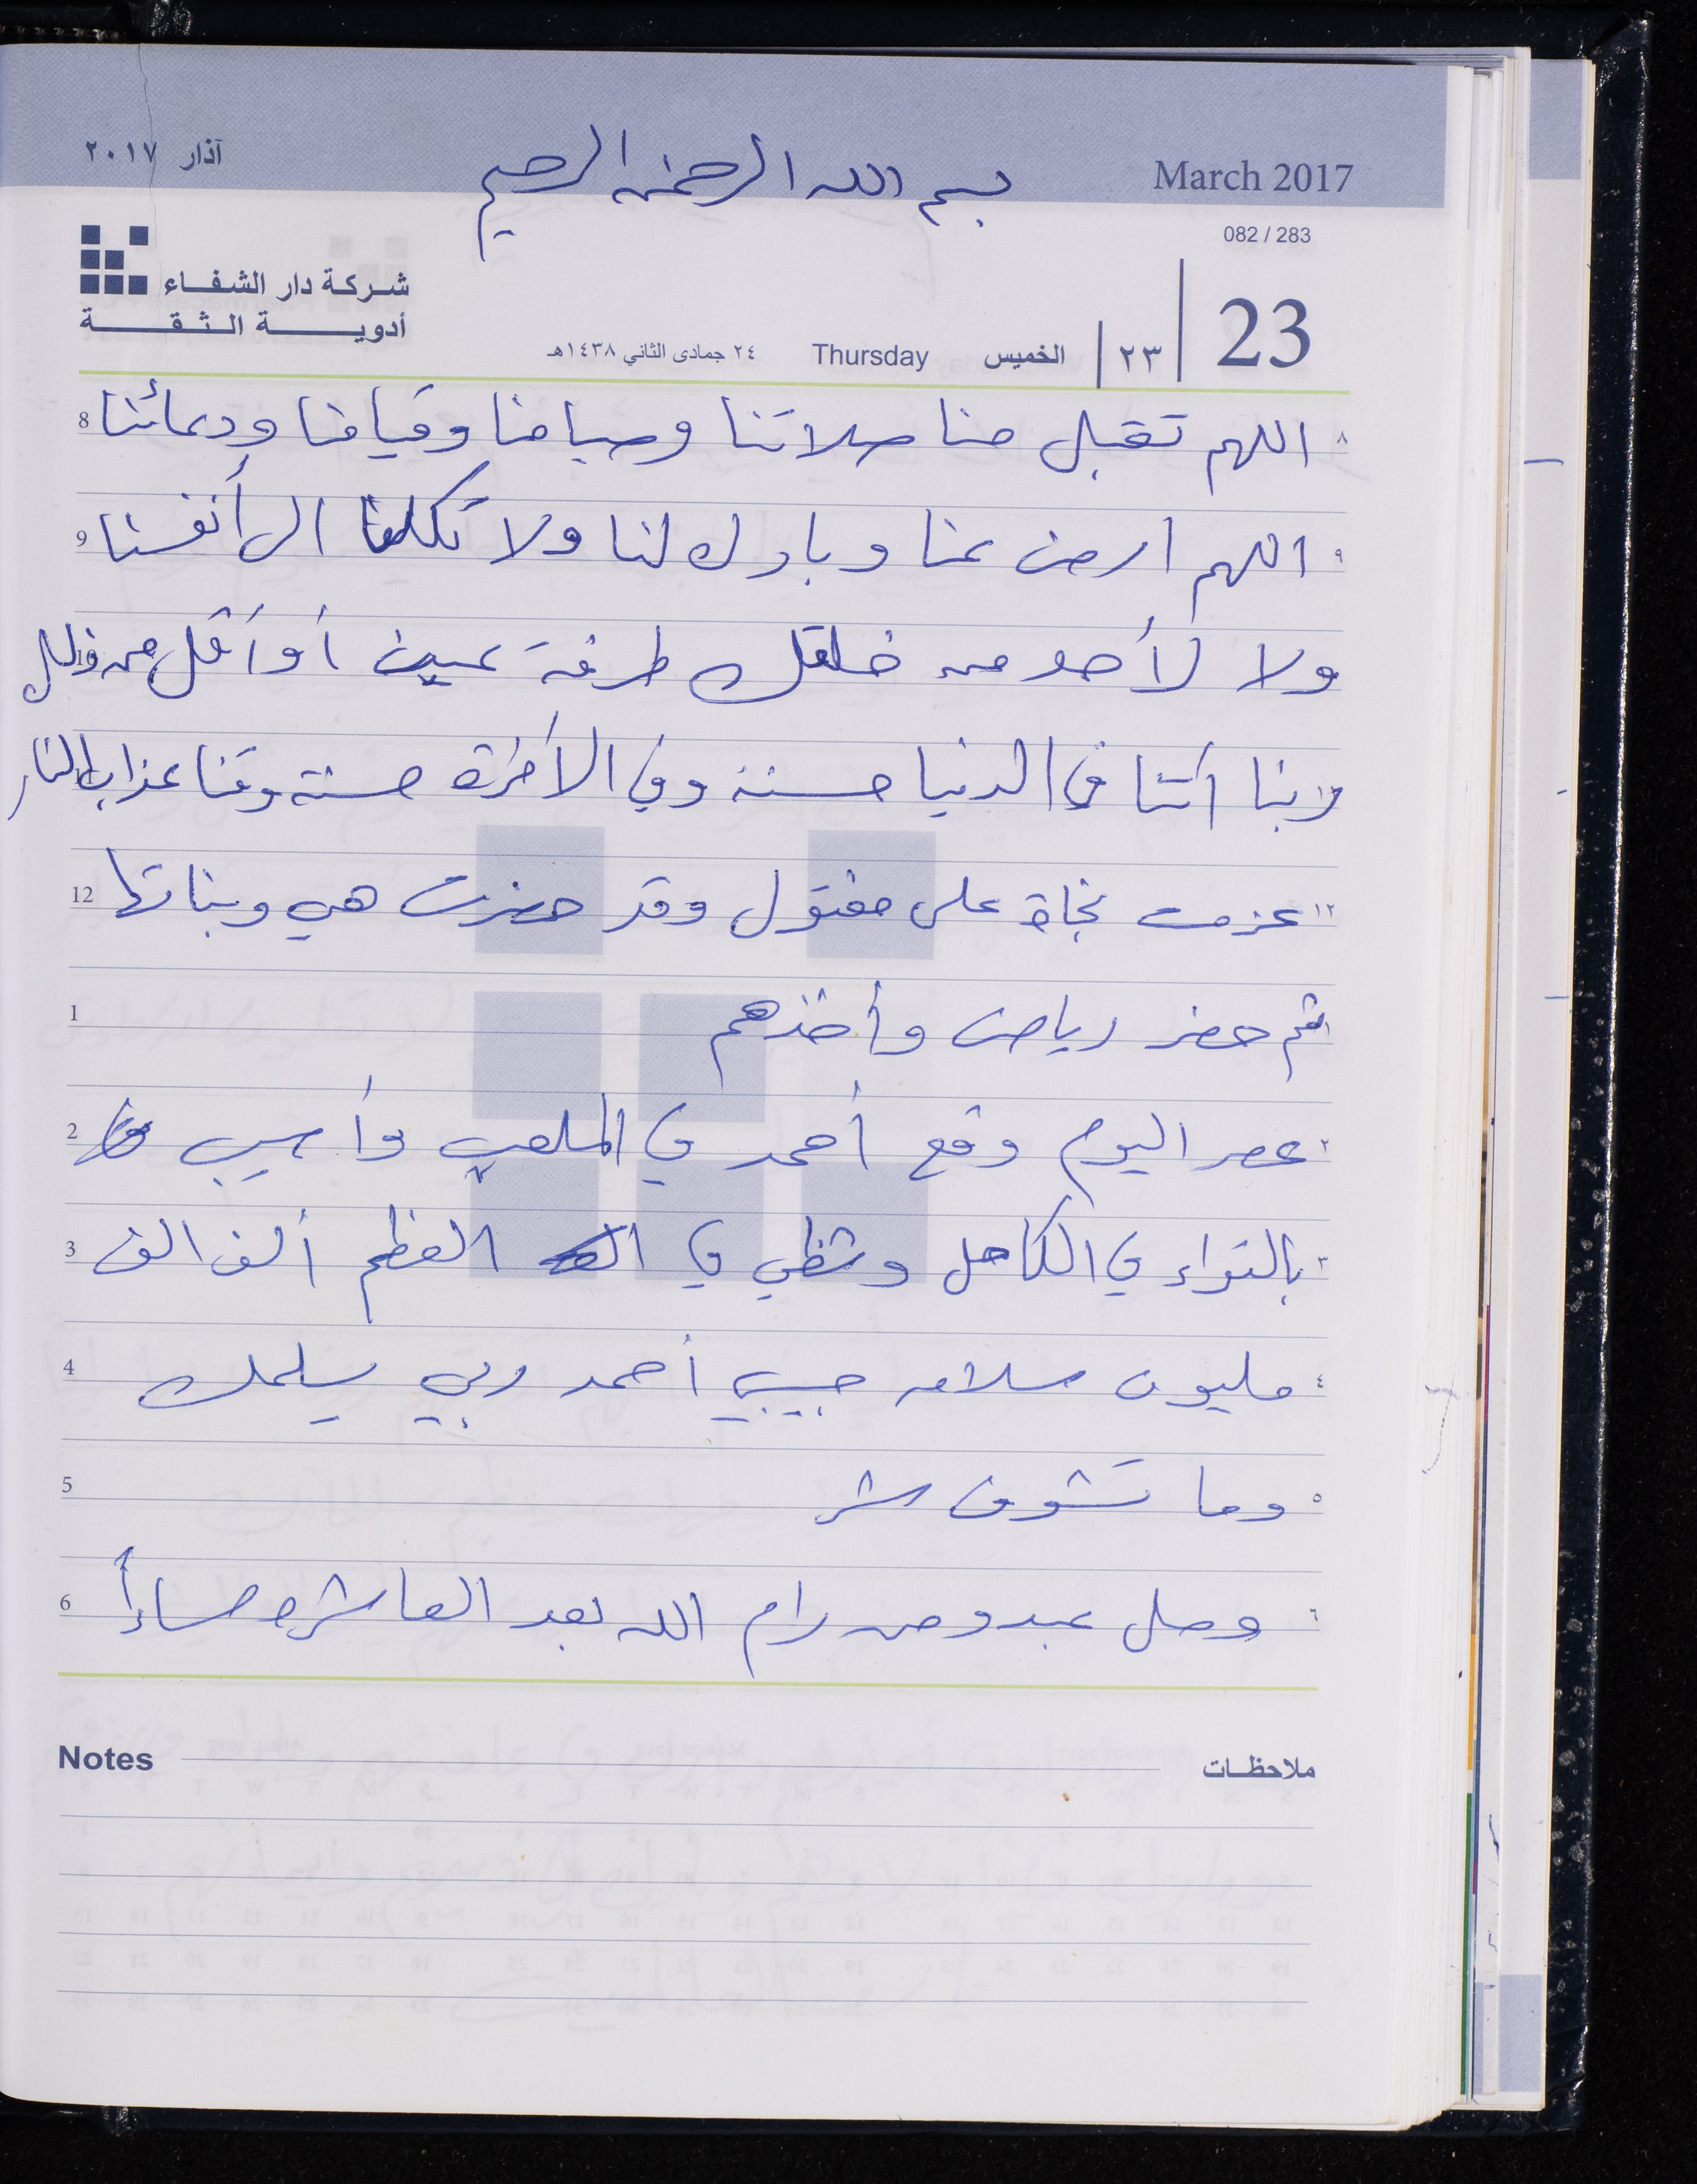 آذار ٢٠١٧ بسم الله الرحمن الرحيم March 2017
082 / 283
شركة دار الشفاء
أدوية الثقة
23 ٢٣ الخميس Thursday ٢٤ جمادى الثاني ١٤٣٨هـ
٨ اللهم تقبل منا صلاتنا وصيامنا وقيامنا ودعائنا 8
٩ اللهم ارض عنا وبارك لنا ولا تكلنا الى أنفسنا 9
ولا لأحد من خلقك طرفة عين أو أقل من ذلك
ربنا آتنا في الدنيا حسنة وفي الآخرة حسنة وقنا عذاب النار
١٢ عزمت نجاة على مفتول وقد حضرت هي وبناتها 12
ثم حضر رياض وأخذهم 1
٢ عصر اليوم وقع أحمد في الملعب وأصيب 2
٣ بالتواء في الكاحل وشظي في العظم ألف الف 3
٤ مليون سلامه حبيبي أحمد وربي يسلمك 4
٥ وما تشوف شر 5
٦ وصل عبد ومن رام الله بعد العاشره مساءاً 6
Notes ملاحظات